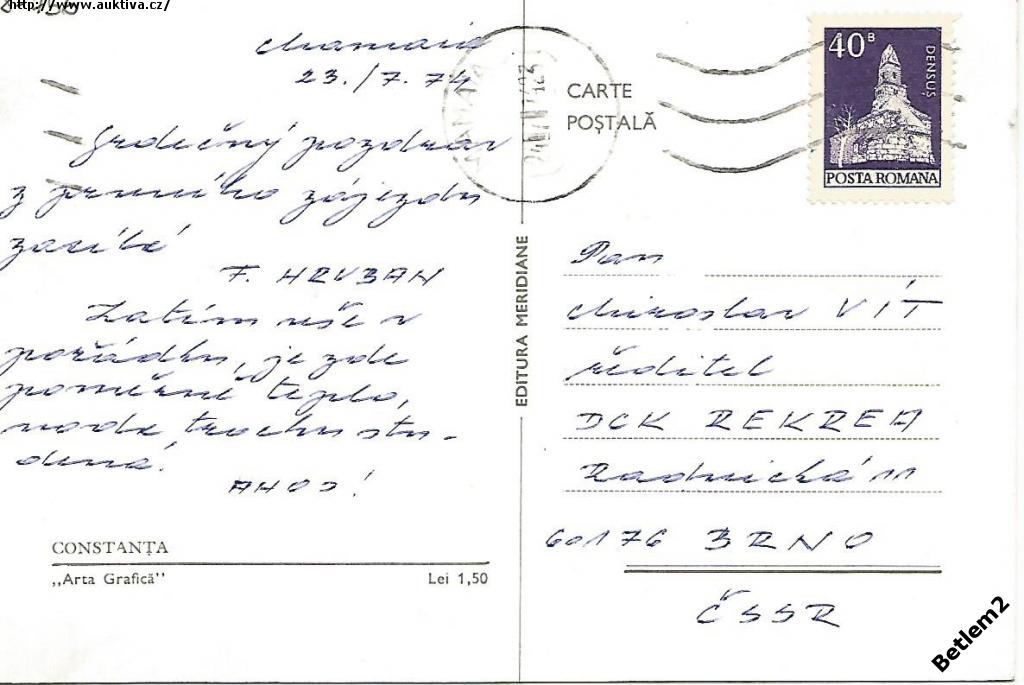 http://www.auktiva.cz/
Mamaia
23./7.74
Srdečný pozdrav
z prvního zájezdu
zasílá
F. HRUBAN
Zatím vše v
pořádku, je zde
poměrně teplo,
voda trochu stu-
dená.
AHOJ!
CONSTANȚA
„Arta Grafică”
Lei 1,50
EDITURA MERIDIANE
CARTE
POȘTALĂ
40 B
DENSUȘ
POSTA ROMANA
Pan
Miroslav VÍT
ředitel
DCK REKREA
Radnická 11
60176 BRNO
ČSSR
Betlem2